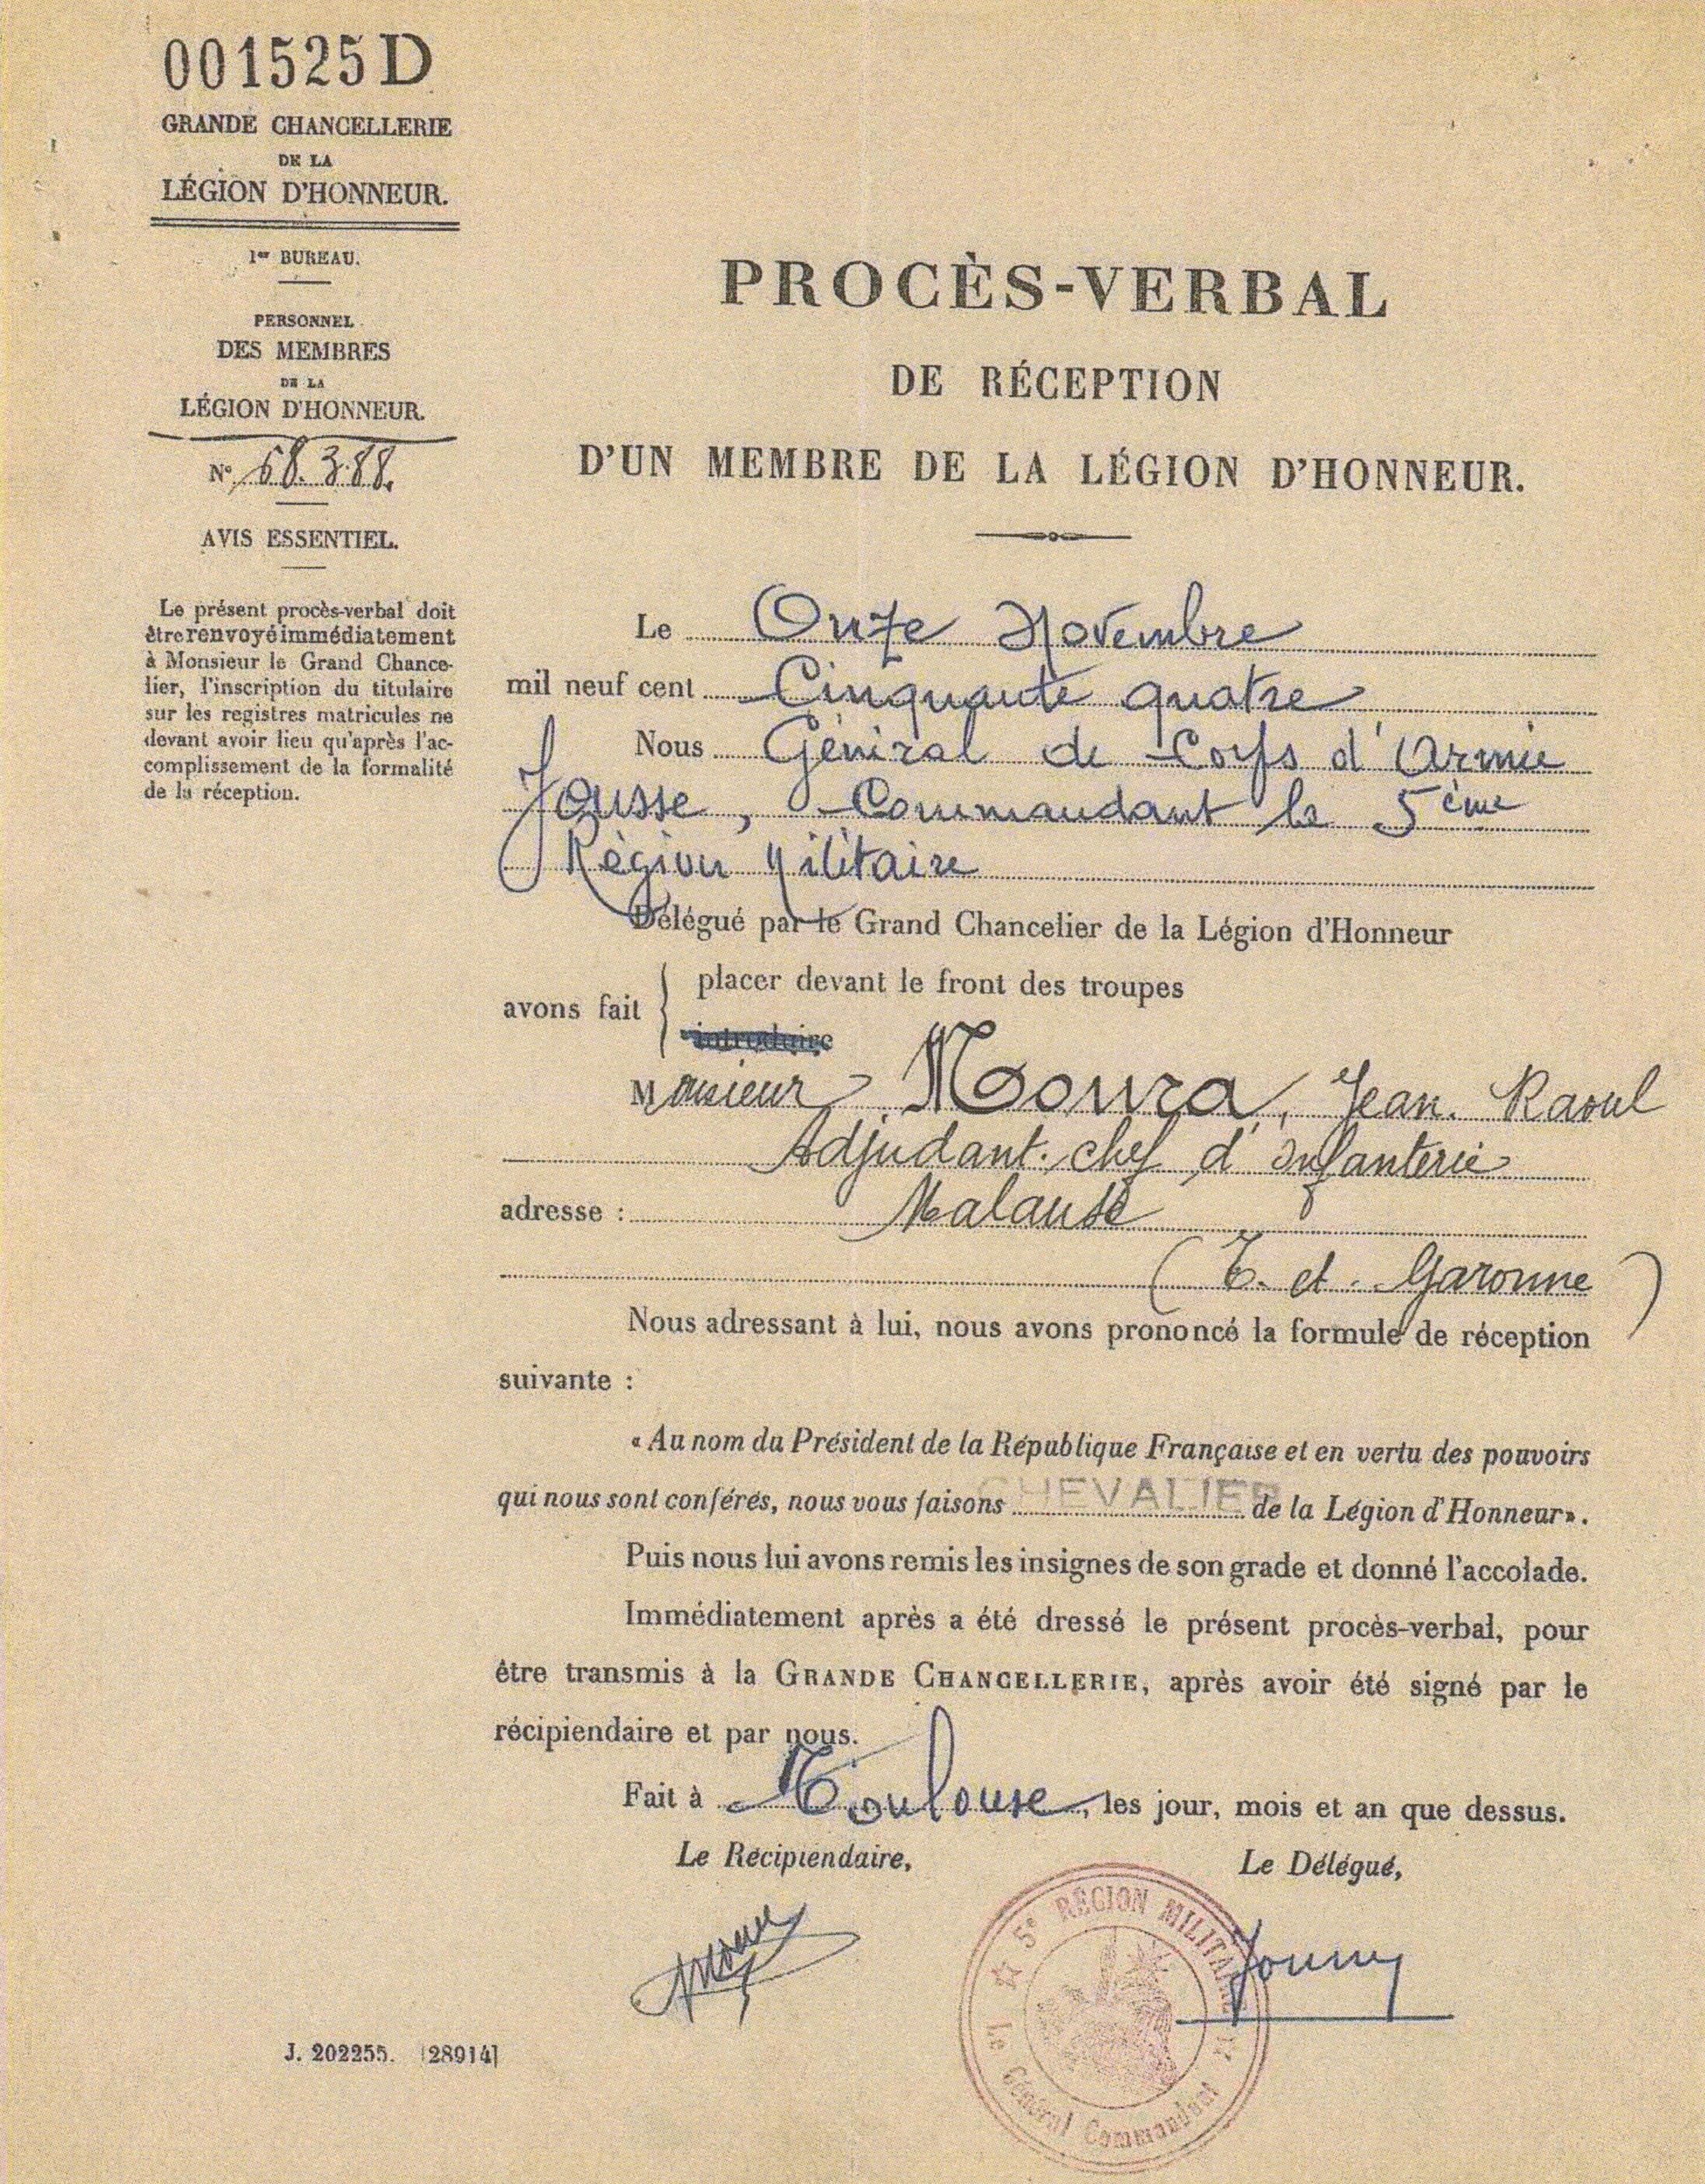 001525 D
GRANDE CHANCELLERIE
DE LA
LÉGION D'HONNEUR.
1er BUREAU.
PERSONNEL
DES MEMBRES
DE LA
LÉGION D'HONNEUR.
N° 68.388.
AVIS ESSENTIEL.
Le présent procès-verbal doit
être renvoyé immédiatement
à Monsieur le Grand Chance-
lier, l'inscription du titulaire
sur les registres matricules ne
devant avoir lieu qu'après l'ac-
complissement de la formalité
de la réception.
PROCÈS-VERBAL
DE RÉCEPTION
D'UN MEMBRE DE LA LÉGION D'HONNEUR.
Le Onze Novembre
mil neuf cent Cinquante quatre
Nous Général de Corps d'Armée
Jousse, Commandant la 5ème
Région Militaire
Délégué par le Grand Chancelier de la Légion d'Honneur
placer devant le front des troupes
avons fait
introduire
Monsieur Moura, Jean. Raoul
Adjudant. chef d'Infanterie
adresse : Malause
(T. et. Garonne)
Nous adressant à lui, nous avons prononcé la formule de réception
suivante :
« Au nom du Président de la République Française et en vertu des pouvoirs
qui nous sont conférés, nous vous faisons CHEVALIER de la Légion d'Honneur».
Puis nous lui avons remis les insignes de son grade et donné l'accolade.
Immédiatement après a été dressé le présent procès-verbal, pour
être transmis à la GRANDE CHANCELLERIE, après avoir été signé par le
récipiendaire et par nous.
Fait à Toulouse, les jour, mois et an que dessus.
Le Récipiendaire,
Le Délégué,
5e RÉGION MILITAIRE
Le Général Commandant
J. 202255. [28914]